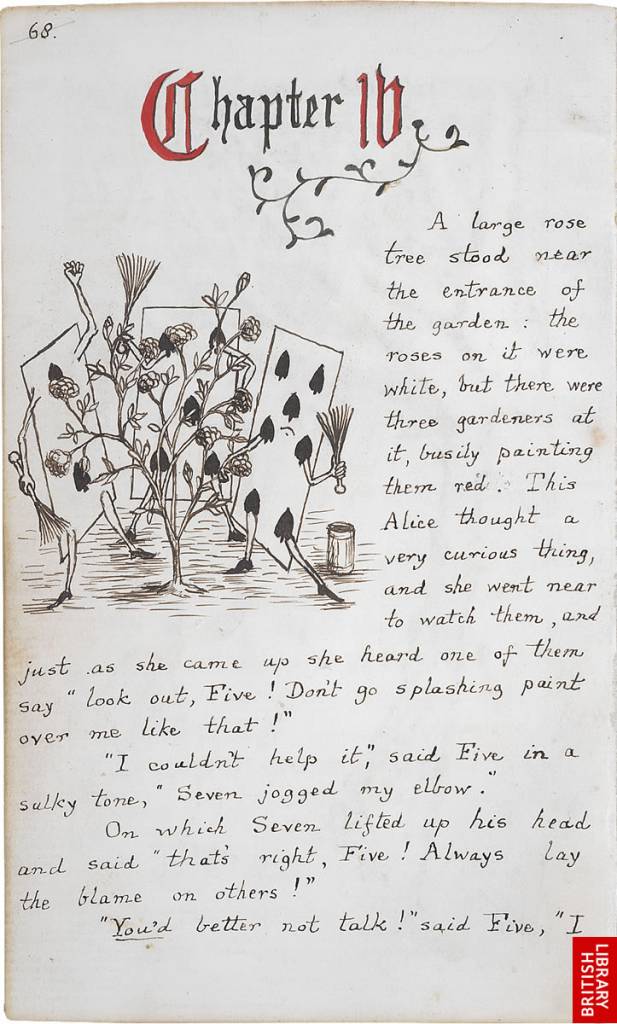 68.
Chapter IV
A large rose
tree stood near
the entrance of
the garden : the
roses on it were
white, but there were
three gardeners at
it, busily painting
them red. This
Alice thought a
very curious thing,
and she went near
to watch them, and
just as she came up she heard one of them
say "look out, Five! Don't go splashing paint
over me like that!"
"I couldn't help it," said Five in a
sulky tone, "Seven jogged my elbow."
On which Seven lifted up his head
and said "that's right, Five! Always lay
the blame on others!"
"You'd better not talk!" said Five, "I
BRITISH
LIBRARY